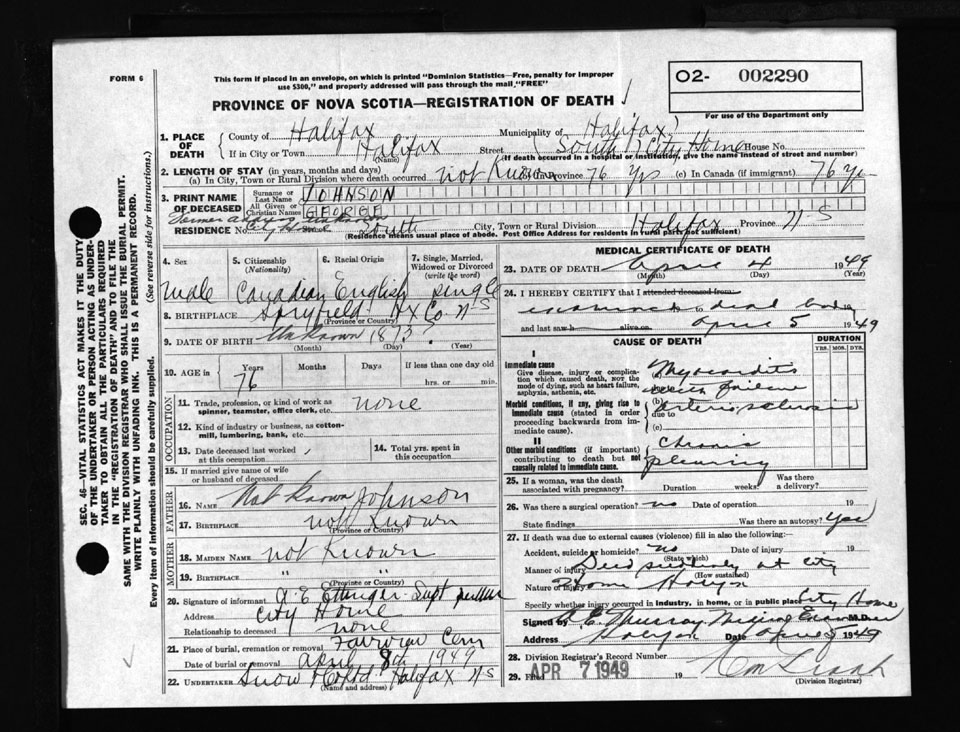 FORM 6
This form if placed in an envelope, on which is printed "Dominion Statistics—Free, penalty for improper
use $300," and properly addressed will pass through the mail "FREE"
O2- 002290
For use of the Department only
PROVINCE OF NOVA SCOTIA—REGISTRATION OF DEATH
SEC. 46—VITAL STATISTICS ACT MAKES IT THE DUTY
OF THE UNDERTAKER OR PERSON ACTING AS UNDER-
TAKER TO OBTAIN ALL THE PARTICULARS REQUIRED
IN THE "REGISTRATION OF DEATH" AND TO FILE THE
SAME WITH THE DIVISION REGISTRAR WHO SHALL ISSUE THE BURIAL PERMIT.
WRITE PLAINLY WITH UNFADING INK. THIS IS A PERMANENT RECORD.
Every item of information should be carefully supplied. (See reverse side for instructions.)
1. PLACE OF DEATH
County of Halifax Municipality of Halifax
If in City or Town Halifax Street South City Home House No.
(Name) (If death occurred in a hospital or institution, give the name instead of street and number)
2. LENGTH OF STAY (in years, months and days)
(a) In City, Town or Rural Division where death occurred not known Province 76 yrs (c) In Canada (if immigrant) 76 yrs
3. PRINT NAME OF DECEASED
Surname or Last Name JOHNSON
All Given or Christian Names GEORGE
Former address unknown
RESIDENCE No. City Home South City, Town or Rural Division Halifax Province N-S
(Residence means usual place of abode. Post Office Address for residents in rural parts not sufficient)
4. Sex
5. Citizenship (Nationality)
6. Racial Origin
7. Single, Married, Widowed or Divorced (write the word)
male Canadian English single
8. BIRTHPLACE Spryfield Hx Co N-S
(Province or Country)
9. DATE OF BIRTH Unknown 1873?
(Month) (Day) (Year)
10. AGE in Years Months Days If less than one day old
76 hrs. or min.
OCCUPATION
11. Trade, profession, or kind of work as spinner, teamster, office clerk, etc. none
12. Kind of industry or business, as cotton-mill, lumbering, bank, etc.
13. Date deceased last worked at this occupation
14. Total yrs. spent in this occupation
15. If married give name of wife or husband of deceased
FATHER
16. NAME Not known Johnson
17. BIRTHPLACE not known
(Province or Country)
MOTHER
18. MAIDEN NAME not known
19. BIRTHPLACE " "
(Province or Country)
20. Signature of informant Supt
Address City Home
Relationship to deceased none
21. Place of burial, cremation or removal Fairview Cem
Date of burial or removal April 8th 1949
22. UNDERTAKER Snow & Co Ltd Halifax NS
(Name and address)
MEDICAL CERTIFICATE OF DEATH
23. DATE OF DEATH April 4 1949
(Month) (Day) (Year)
24. I HEREBY CERTIFY that I attended deceased from
dead body 19
and last saw h alive on April 5 1949
CAUSE OF DEATH
DURATION
YRS. MOS. DYS.
I
Immediate cause
Give disease, injury or complication which caused death, NOT the mode of dying, such as heart failure, asphyxia, asthenia, etc.
Myocarditis
failure
Morbid conditions, if any, giving rise to immediate cause (stated in order proceeding backwards from immediate cause).
(b) due to arteriosclerosis
(c)
II
Other morbid conditions (if important) contributing to death but not causally related to immediate cause.
Chronic
pleurisy
25. If a woman, was the death associated with pregnancy? Duration weeks. Was there a delivery?
26. Was there a surgical operation? no Date of operation 19
State findings Was there an autopsy? Yes
27. If death was due to external causes (violence) fill in also the following:
Accident, suicide or homicide? no Date of injury 19
(State which)
Manner of injury Died suddenly at City
(How sustained)
Nature of injury Home
Specify whether injury occurred in industry, in home, or in public place City Home
Signed by Murray Medical Examiner M.D.
Address Date April 1949
28. Division Registrar's Record Number
29. Filed APR 7 1949 19
(Division Registrar)